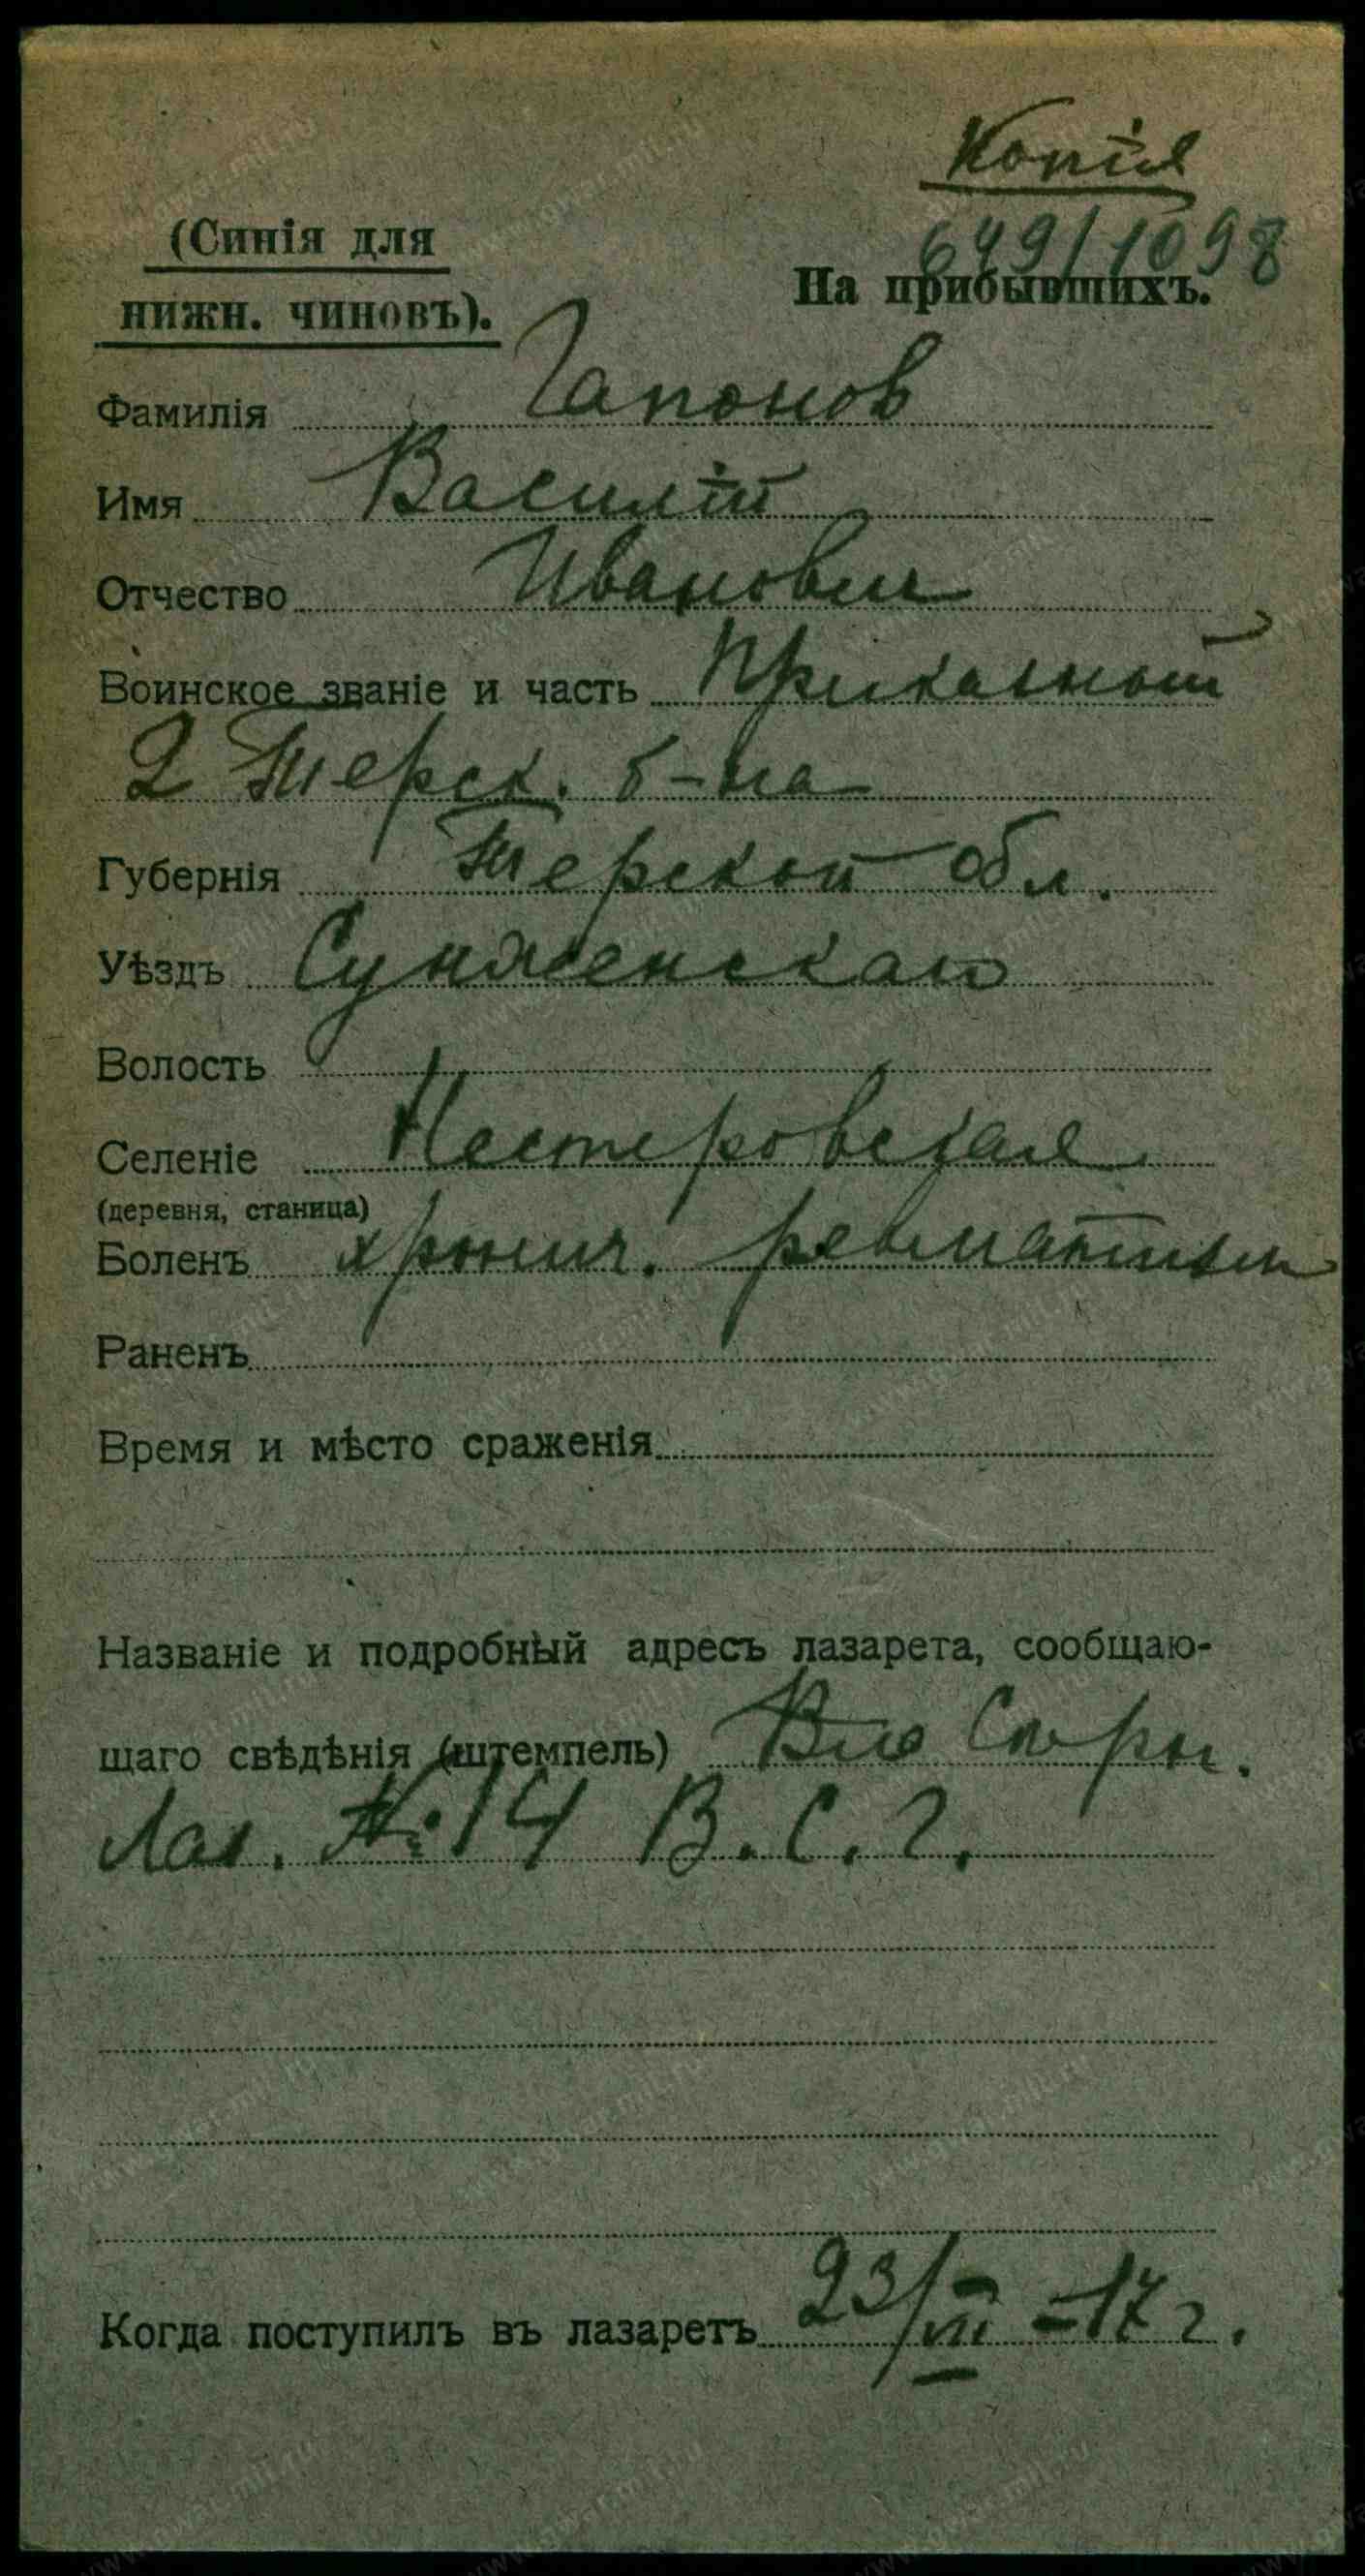 Копія
649/1098
(Синія для
нижн. чиновъ).
На прибывшихъ.
Фамилія Гапонов
Имя Василій
Отчество Иванович
Воинское званіе и часть Приказный
2 Терск. б-на
Губернія Терской обл.
Уѣздъ Сунженскаго
Волость
Селеніе Нестеровская
(деревня, станица)
Боленъ хронич. ревматизм
Раненъ
Время и мѣсто сраженія
Названіе и подробный адресъ лазарета, сообщаю-
щаго свѣдѣнія (штемпель)
Лаз. № 14 В. С. Г.
Когда поступилъ въ лазаретъ 23/VII -17 г.
www.gwar.mil.ru